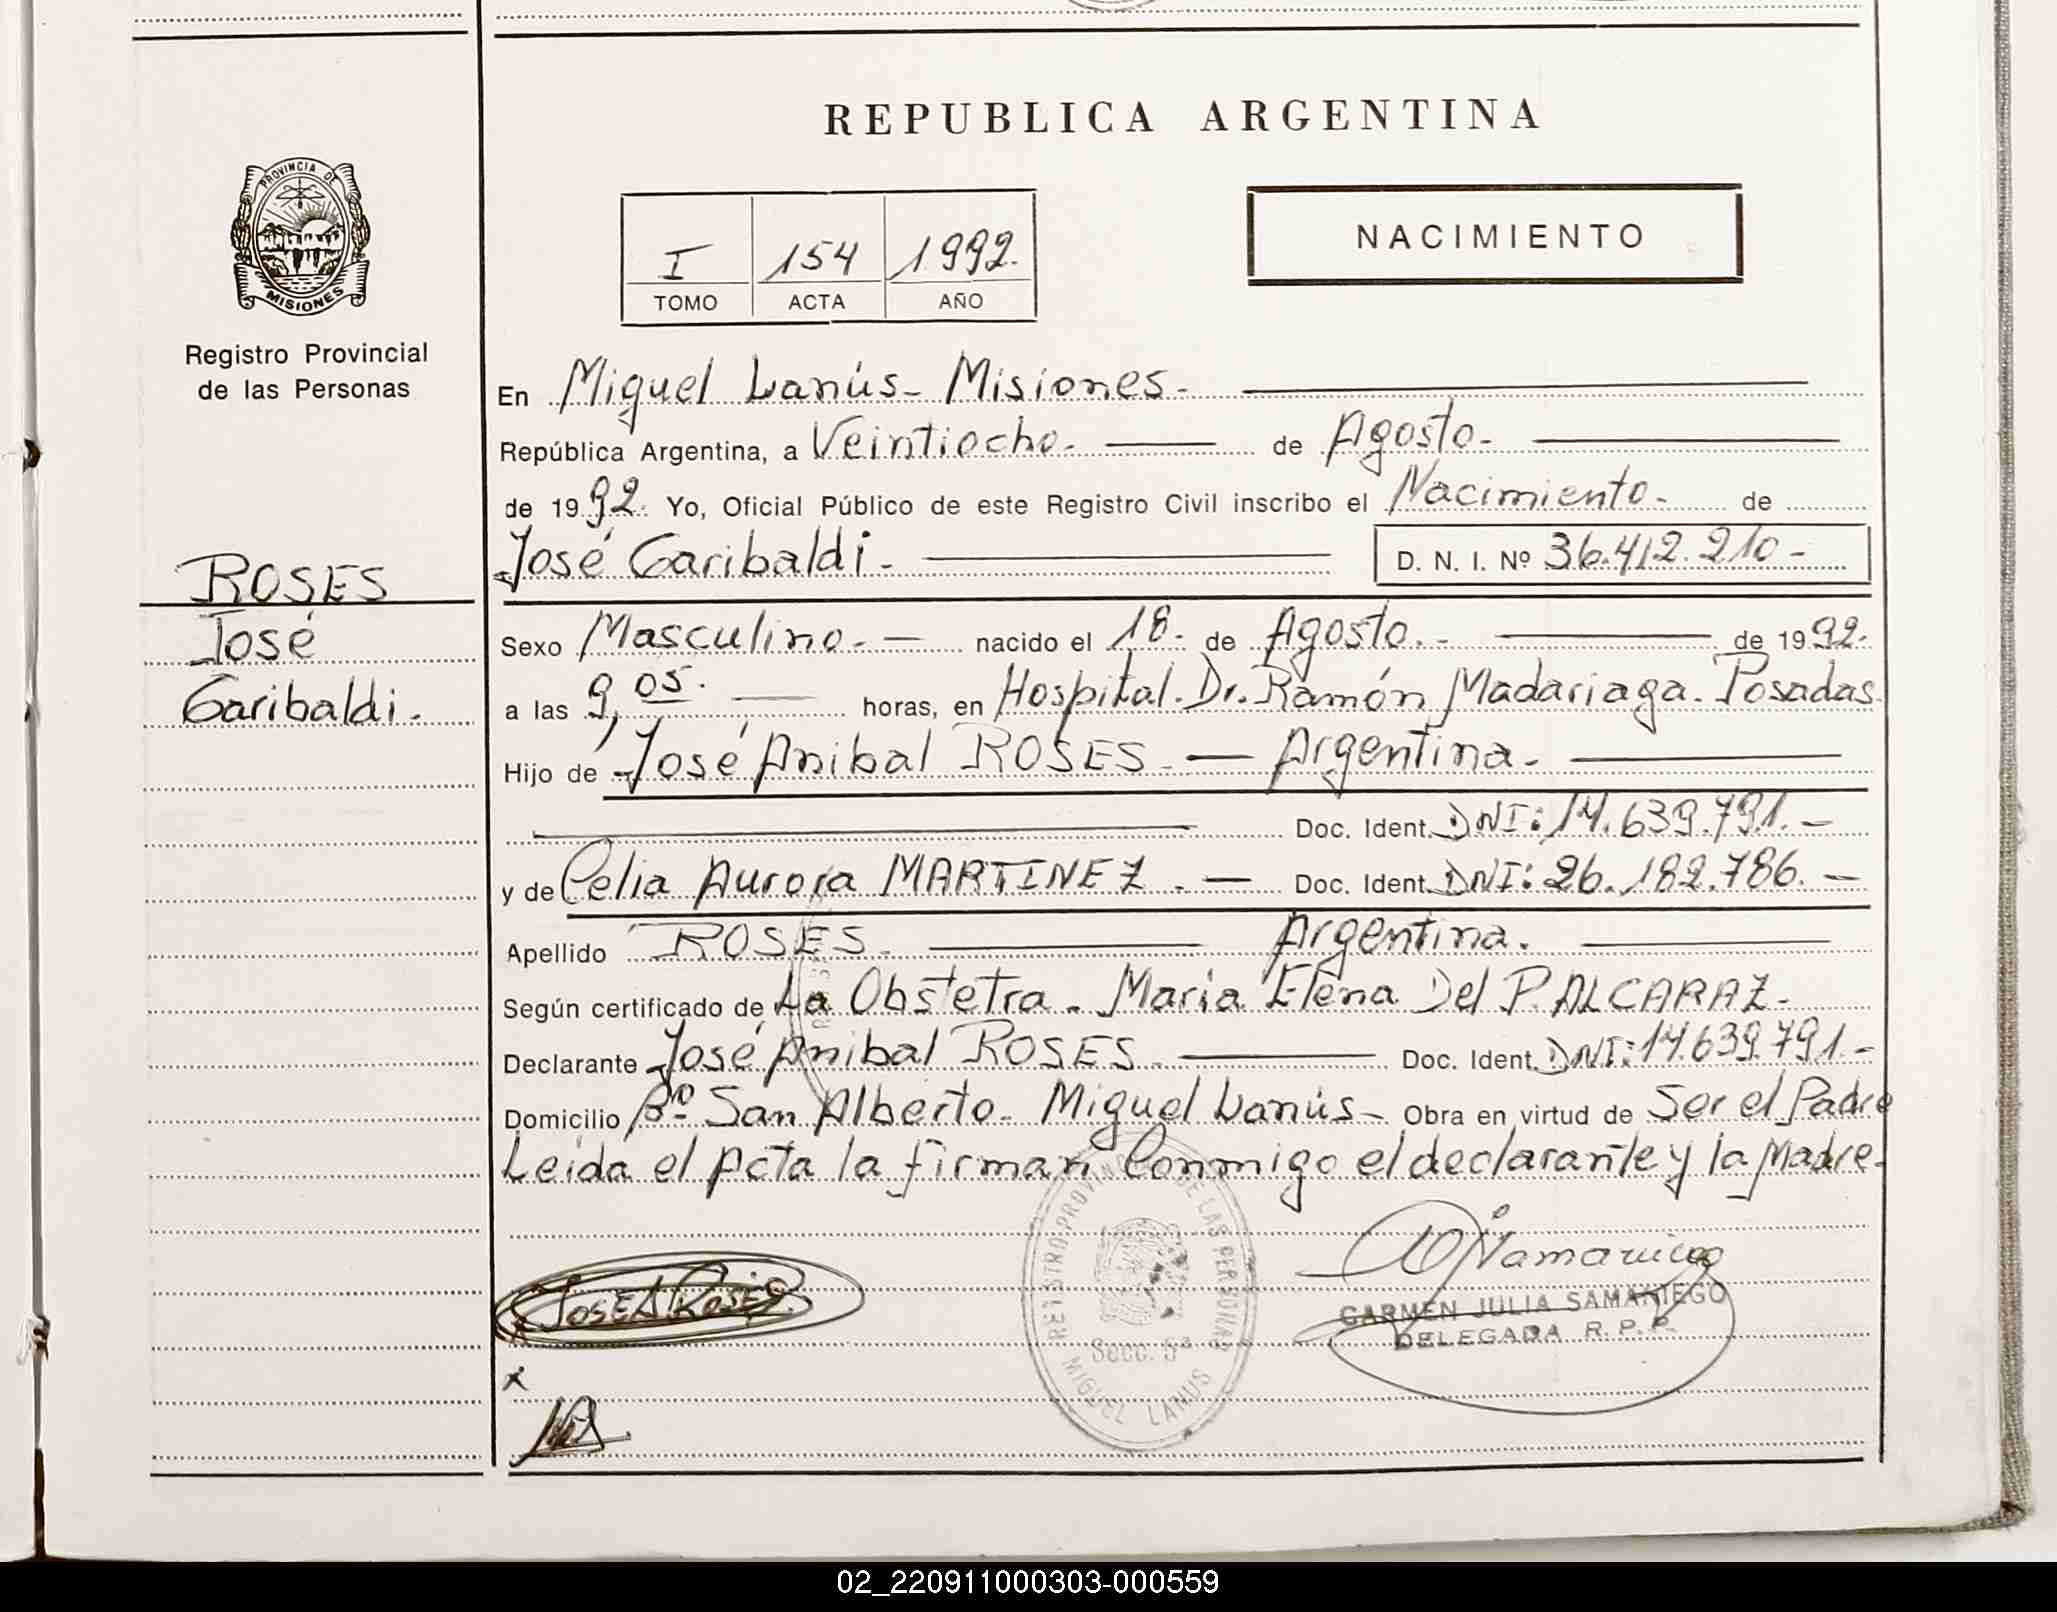 REPUBLICA ARGENTINA
PROVINCIA DE MISIONES
Registro Provincial
de las Personas
I 154 1992.
TOMO ACTA AÑO
NACIMIENTO
En Miguel Lanús - Misiones -
República Argentina, a Veintiocho. de Agosto -
de 1992. Yo, Oficial Público de este Registro Civil inscribo el Nacimiento - de
José Garibaldi - D. N. I. Nº 36.412.210 -
ROSES
José
Garibaldi.
Sexo Masculino. - nacido el 18. de Agosto. - de 1992.
a las 9,05. horas, en Hospital. Dr. Ramón Madariaga. Posadas
Hijo de José Anibal ROSES - Argentina -
Doc. Ident. DNI: 14.639.791. -
y de Celia Aurora MARTINEZ. - Doc. Ident. DNI: 26.182.786. -
Apellido ROSES. Argentina.
Según certificado de La Obstetra. María Elena Del P. ALCARAZ -
Declarante José Anibal ROSES. Doc. Ident. DNI: 14.639.791. -
Domicilio Bº San Alberto - Miguel Lanús - Obra en virtud de Ser el Padre
Leída el Acta la firman Conmigo el declarante y la Madre.
José A Roses
x
REGISTRO PROVINCIAL DE LAS PERSONAS
Secc. 5ª
MIGUEL LANUS
CARMEN JULIA SAMANIEGO
DELEGADA R. P. P.
02_220911000303-000559